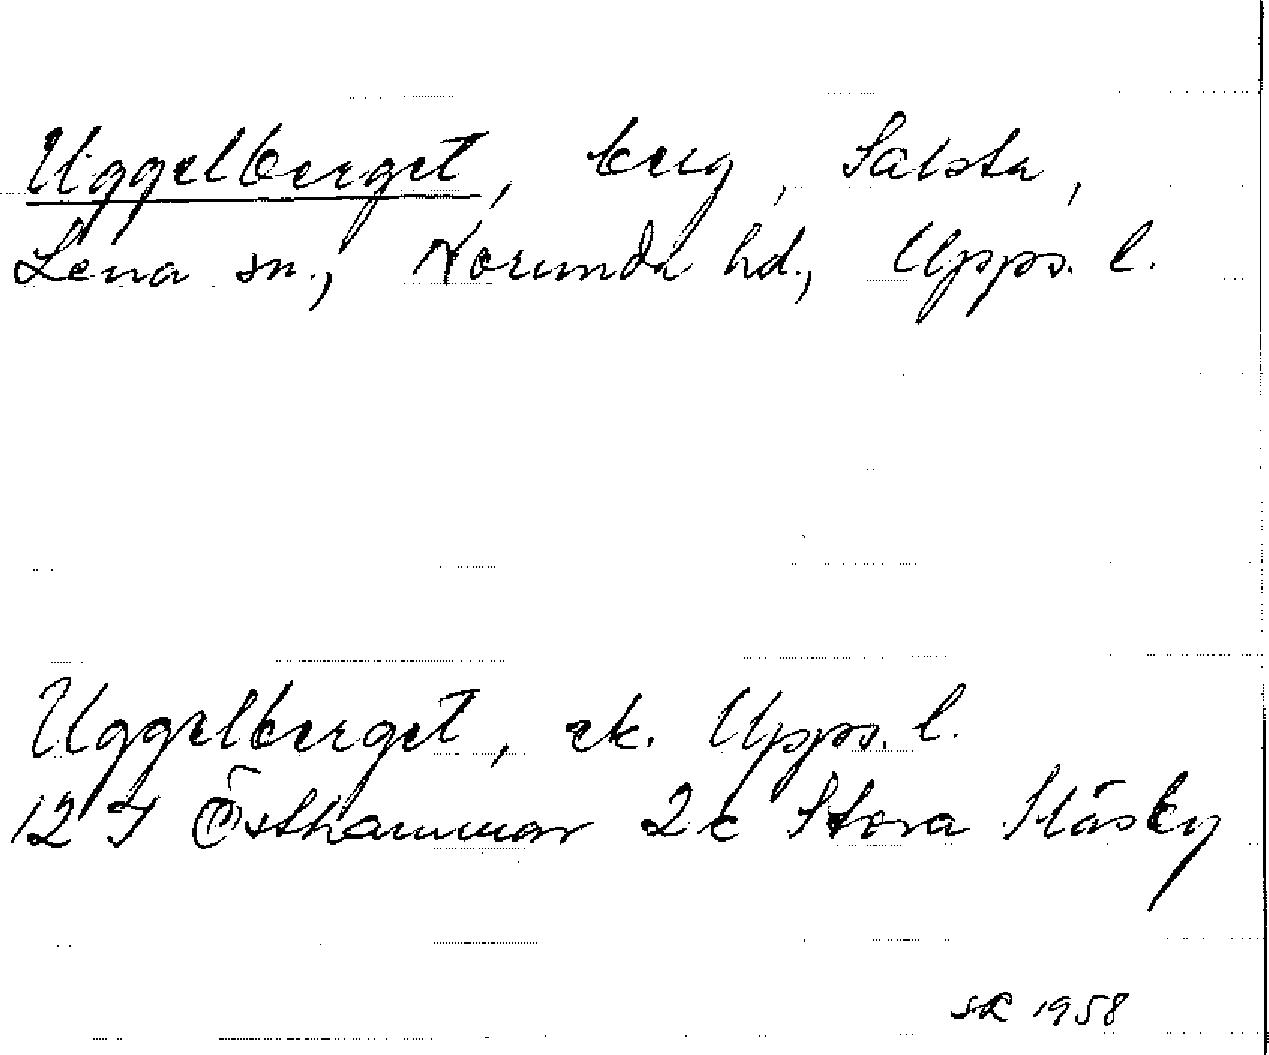 Uggelberget, berg, Salsta,
Lena sn., Norunda hd., Upps. l.
Uggelberget, ek. Upps. l.
12 I Östhammar 2c Stora Stäsby
SR 1958